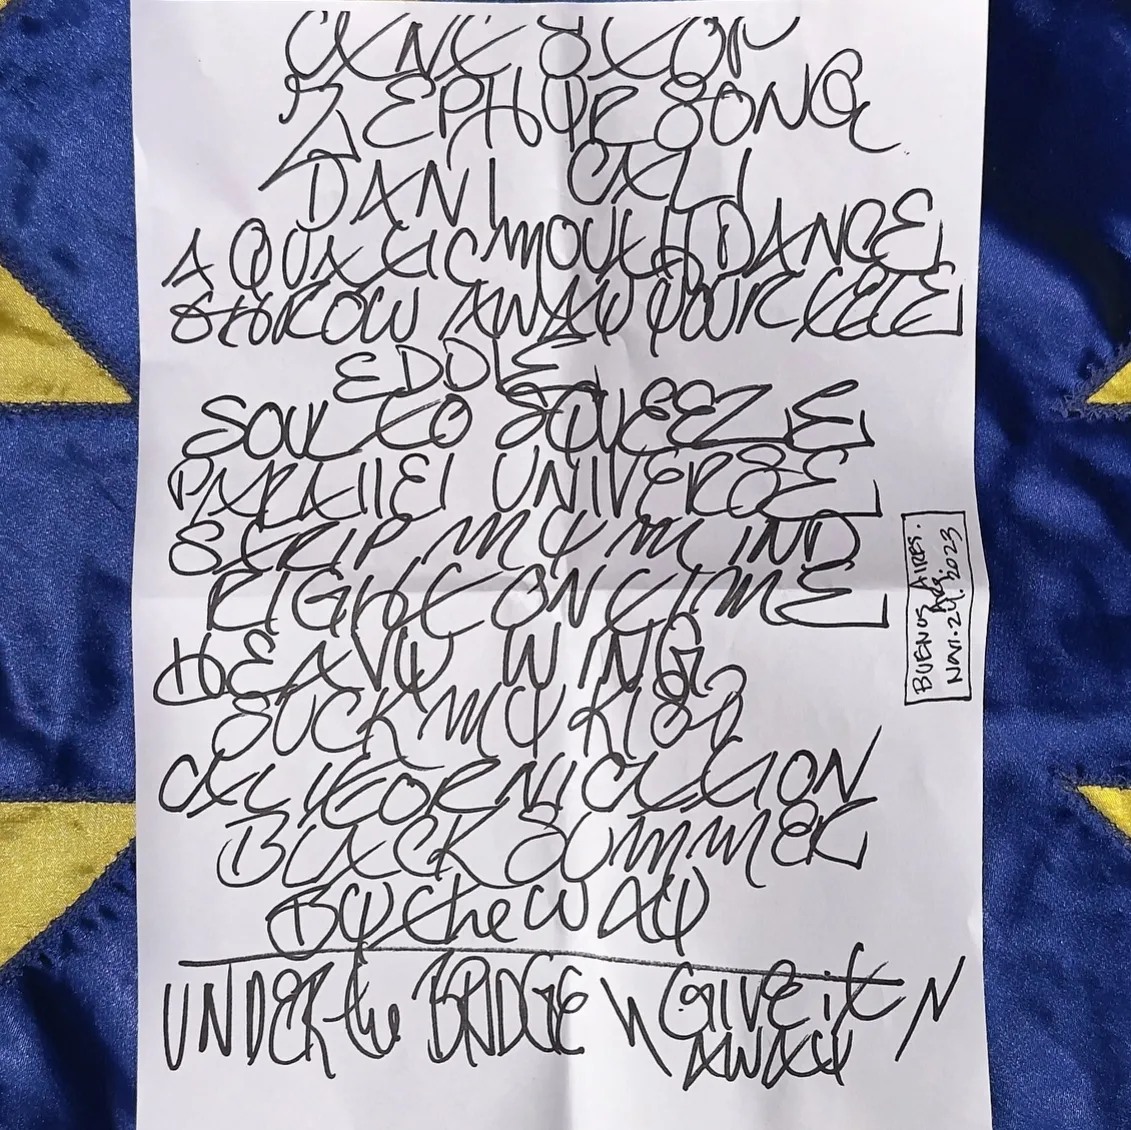 CAN'T STOP
ZEPHYR SONG
DANI CALI
AQUATIC MOUTH DANCE
THROW AWAY YOUR TELE
EDDIE
SOUL TO SQUEEZE
PARALLEL UNIVERSE
STRIP MY MIND
RIGHT ON TIME
HEAVY WING
SUCK MY KISS
CALIFORNICATION
BLACK SUMMER
BY the WAY
UNDER the BRIDGE \\ GIVE it //
AWAY
BUENOS AIRES.
NOV. 24. 2023